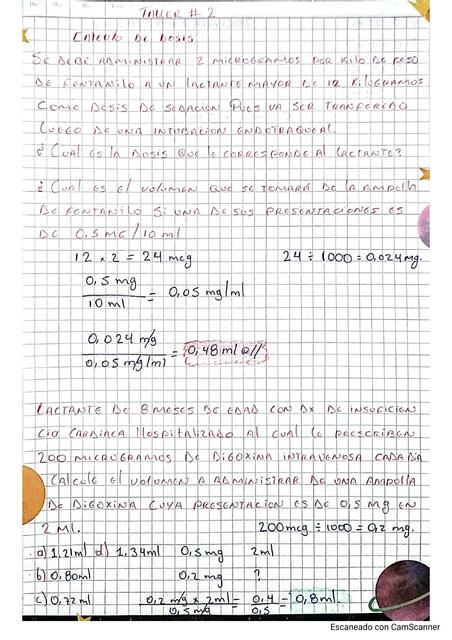 TALLER # 2
CALCULO DE DOSIS
SE DEBE ADMINISTRAR 2 MICROGRAMOS POR KILO DE PESO
DE FENTANILO A UN LACTANTE MAYOR DE 12 KILOGRAMOS
COMO DOSIS DE SEDACION PUES VA SER TRANFERIDO
LUEGO DE UNA INTUBACION ENDOTRAQUEAL.
¿CUAL ES LA DOSIS QUE LE CORRESPONDE AL LACTANTE?
¿CUAL ES EL VOLUMEN QUE SE TOMARÁ DE LA AMPOLLA
DE FENTANILO SI UNA DE SUS PRESENTACIONES ES
DE 0.5 MG / 10 ml
12 x 2 = 24 mcg 24 ÷ 1000 = 0,024 mg.
0,5 mg
10 ml = 0,05 mg/ml
0,024 mg
0,05 mg/ml = 0,48 ml @//
LACTANTE DE 8 MESES DE EDAD CON DX DE INSUFICIEN
CIA CARDIACA HOSPITALIZADO AL CUAL LE PRESCRIBEN
200 MICROGRAMOS DE DIGOXINA INTRAVENOSA CADA DIA
CALCULE EL VOLUMEN A ADMINISTRAR DE UNA AMPOLLA
DE DIGOXINA CUYA PRESENTACION ES DE 0,5 MG EN
2 Ml. 200 mcg ÷ 1000 = 0,2 mg.
a) 1,21 ml d) 1,34 ml 0,5 mg 2 ml
b) 0,80 ml 0,2 mg ?
c) 0,72 ml 0,2 mg x 2 ml = 0,4 = 0,8 ml.
0,5 mg 0,5
Escaneado con CamScanner